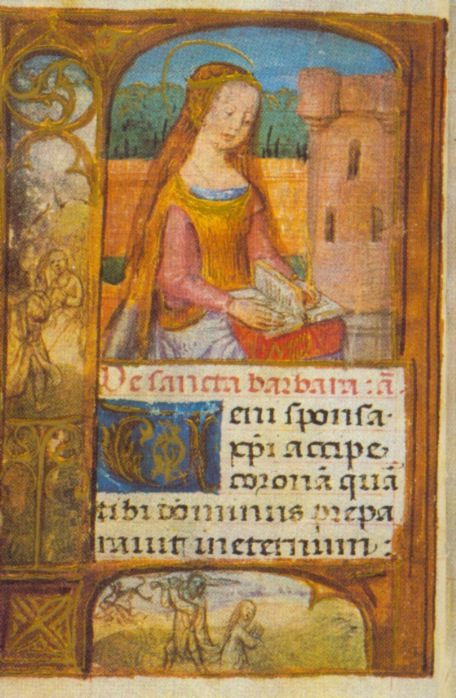 De sancta barbara: ā
Veni sponsa
xp̄i accipe
coronā quā
tibi dominus prepa
rauit in eternum: